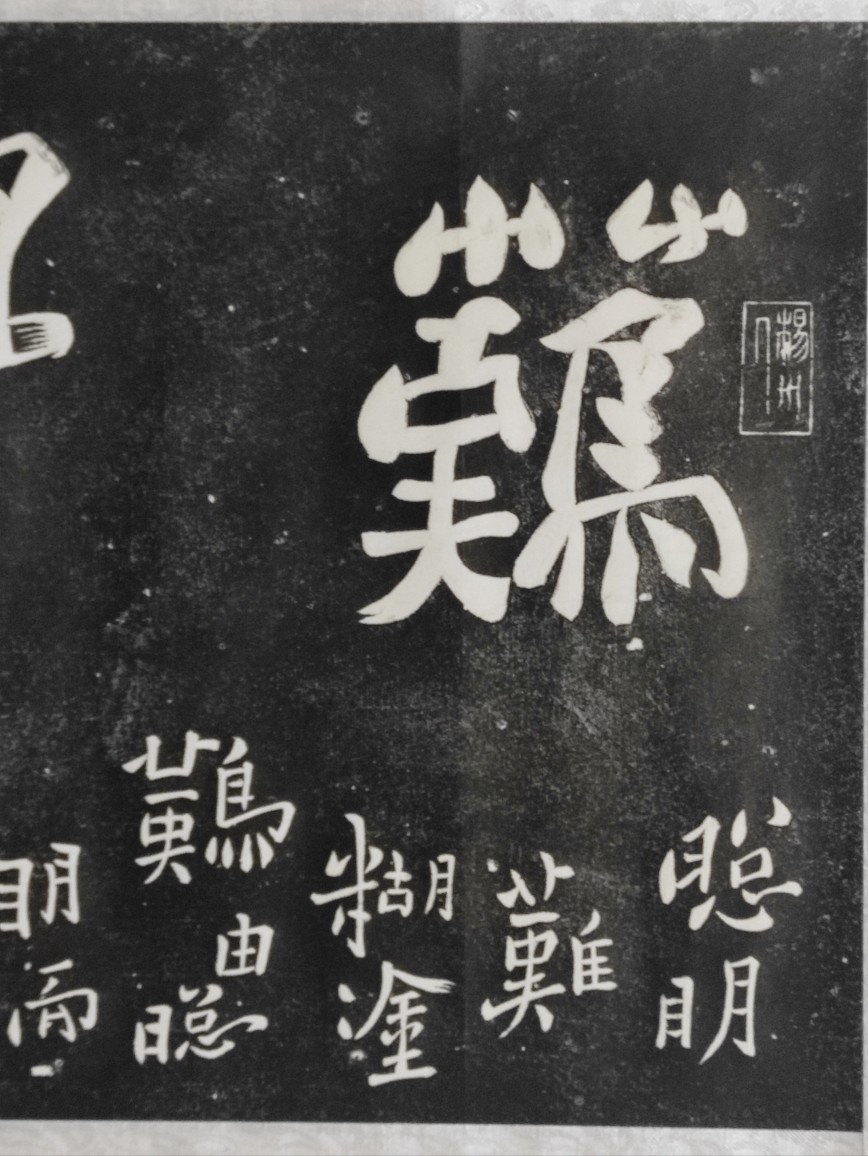 難
楊州
聰明
難
糊塗
難由聰
明而